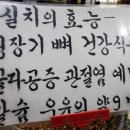 실치의효능-
성장기 뼈 건강식
골다공증 관절염 예
칼슘 우유의 약9